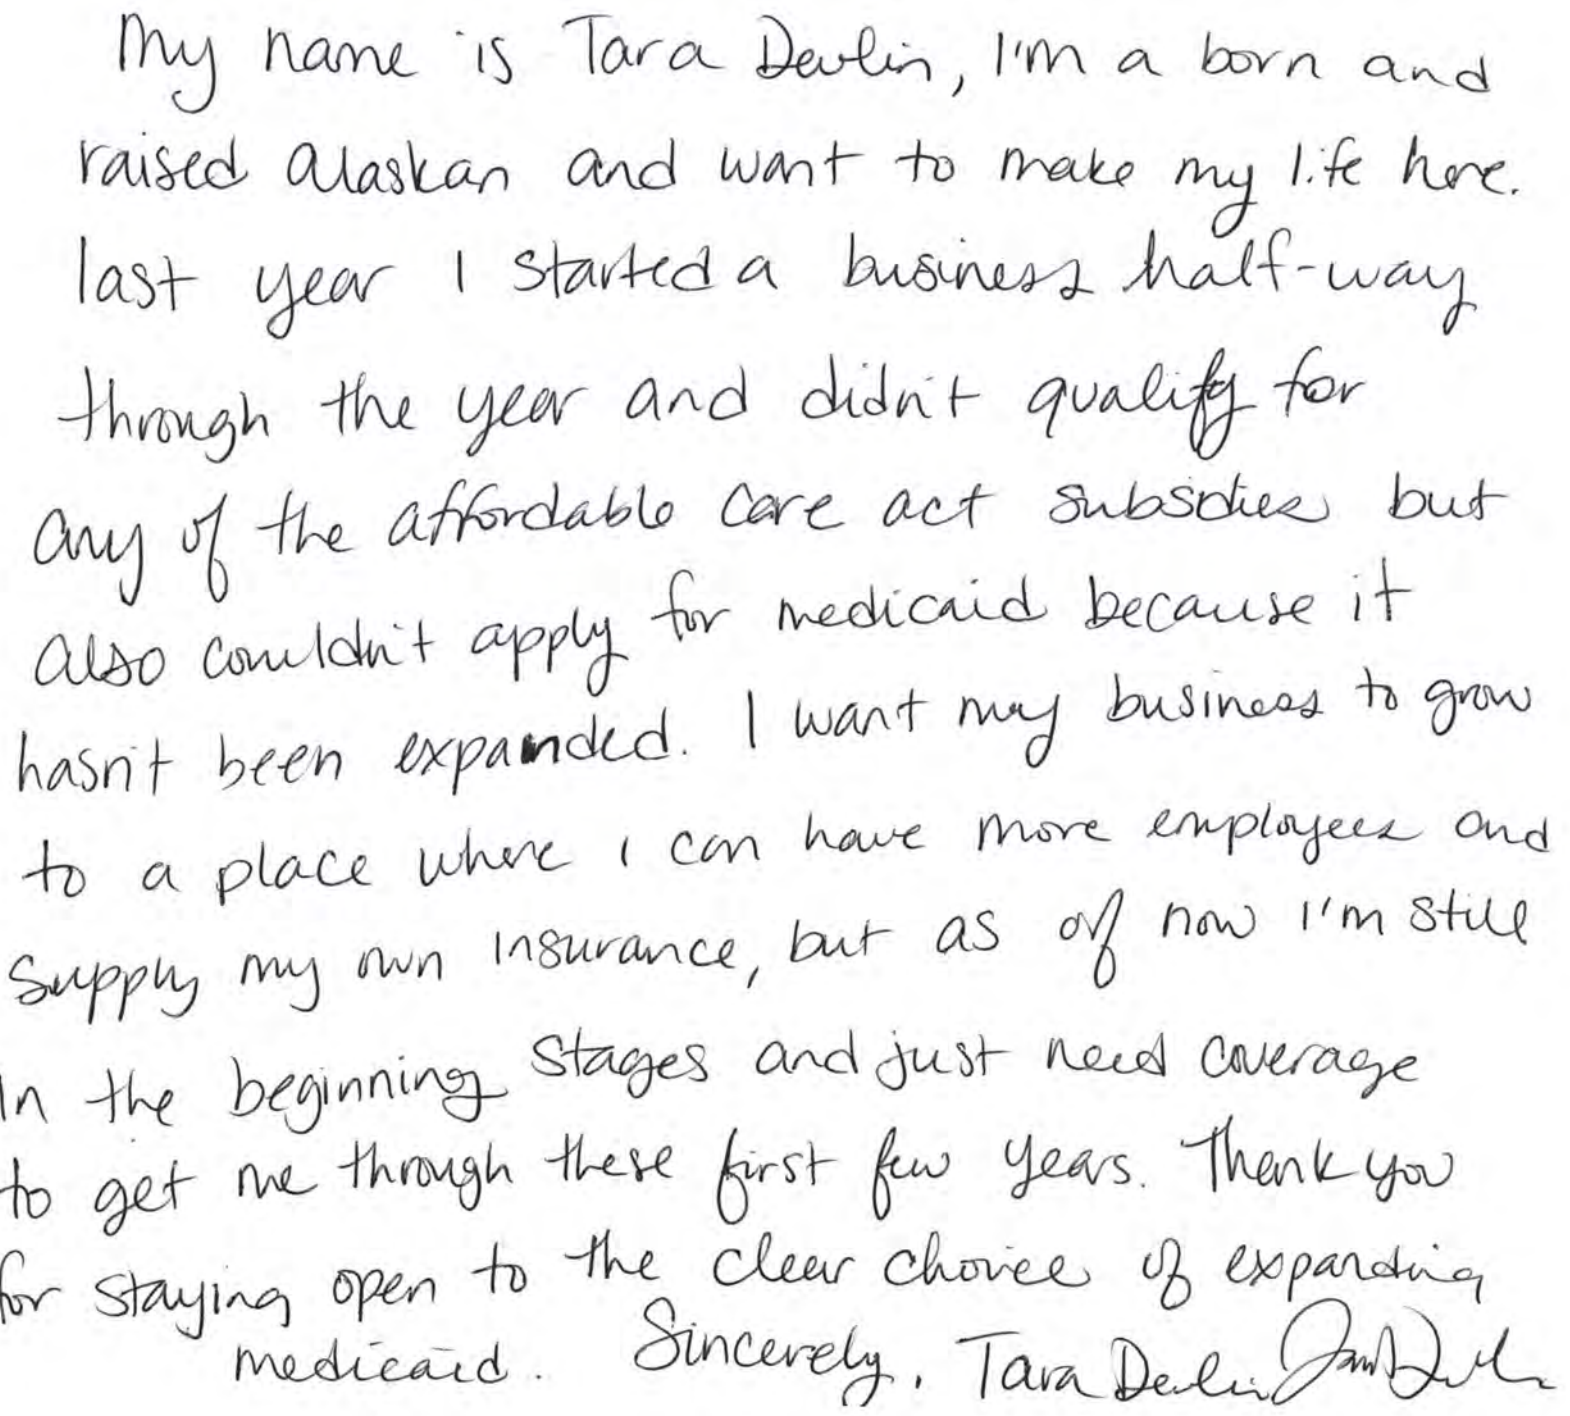 My name is Tara Devlin, I'm a born and
raised Alaskan and want to make my life here.
last year I started a business half-way
through the year and didn't qualify for
any of the affordable care act subsidies but
also couldn't apply for medicaid because it
hasn't been expanded. I want my business to grow
to a place where I can have more employees and
supply my own insurance, but as of now I'm still
in the beginning stages and just need coverage
to get me through these first few years. Thank you
for staying open to the clear choice of expanding
medicaid. Sincerely, Tara Devlin